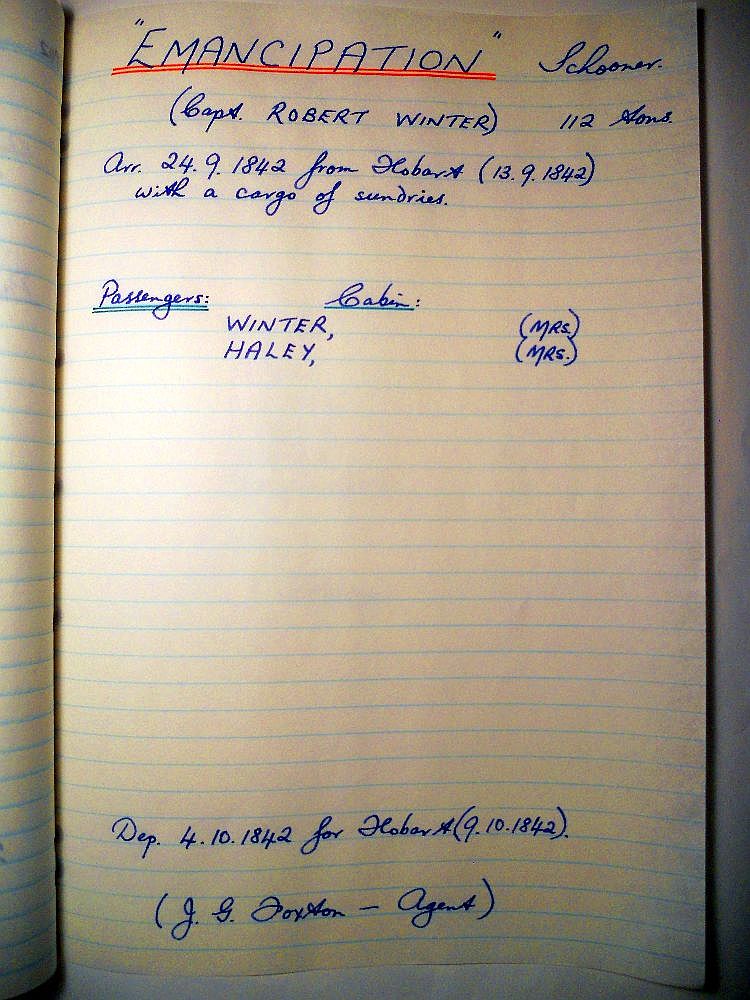 "EMANCIPATION" Schooner.
(Capt. ROBERT WINTER) 112 tons.
Arr. 24.9.1842 from Hobart (13.9.1842)
with a cargo of sundries.
Passengers: Cabin:
WINTER, (MRS.)
HALEY, (MRS.)
Dep. 4.10.1842 for Hobart (9.10.1842).
(J. G. Foxton — Agent)